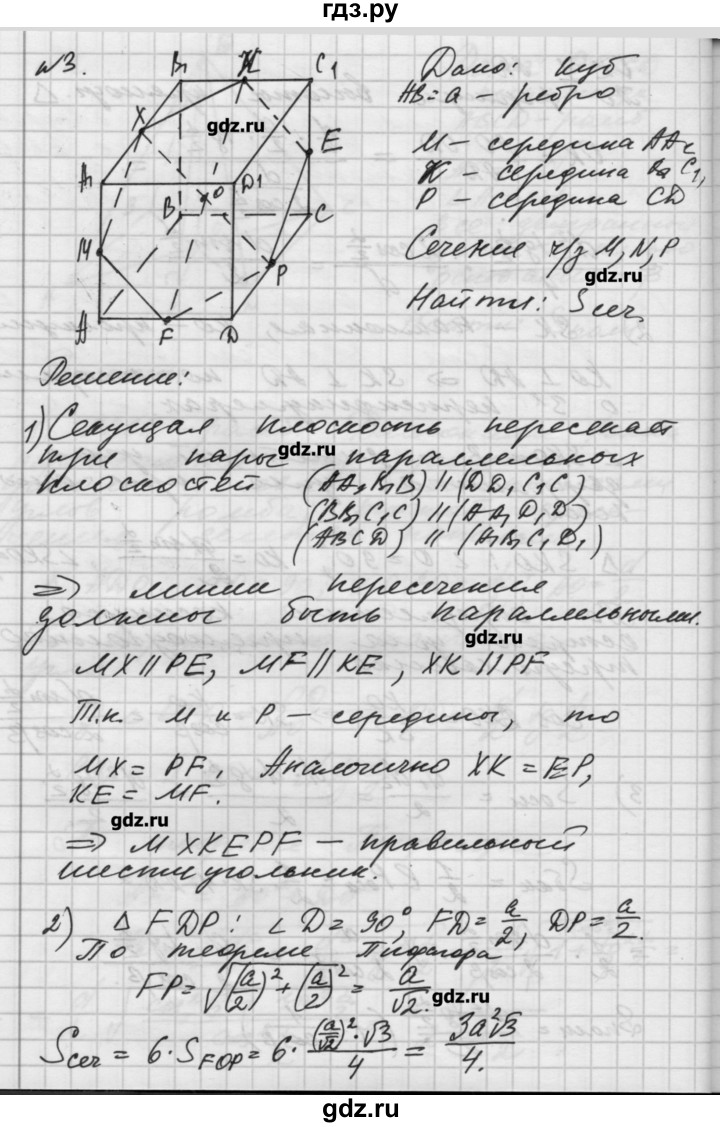 гдз.ру
№3.
B1 K C1
X
gdz.ru
E
A1 D1
O
B C
M
P
A F D
Дано: куб
AB = a - ребро
M - середина AA1
K - середина B1C1,
P - середина CD
Сечение ч/з M, N, P
gdz.ru
Найти: Sсеч.
Решение:
1) Секущая плоскость пересекает
gdz.ru
три пары параллельных
плоскостей (AA1B1B) || (DD1C1C)
(BB1C1C) || (AA1D1D)
(ABCD) || (A1B1C1D1)
=> линии пересечения
должны быть параллельными.
gdz.ru
MX || PE, MF || KE, XK || PF
Т.к. M и P - середины, то
MX = PF, Аналогично XK = EP,
KE = MF.
gdz.ru
=> MXKEPF - правильный
шестиугольник.
2) Δ FDP: ∠D = 90°, FD = a/2, DP = a/2.
По теореме Пифагора
FP = √((a/2)² + (a/2)²) = a/√2.
gdz.ru
Sсеч = 6 · SFOP = 6 · ((a/√2)² · √3)/4 = 3a²√3/4.
gdz.ru